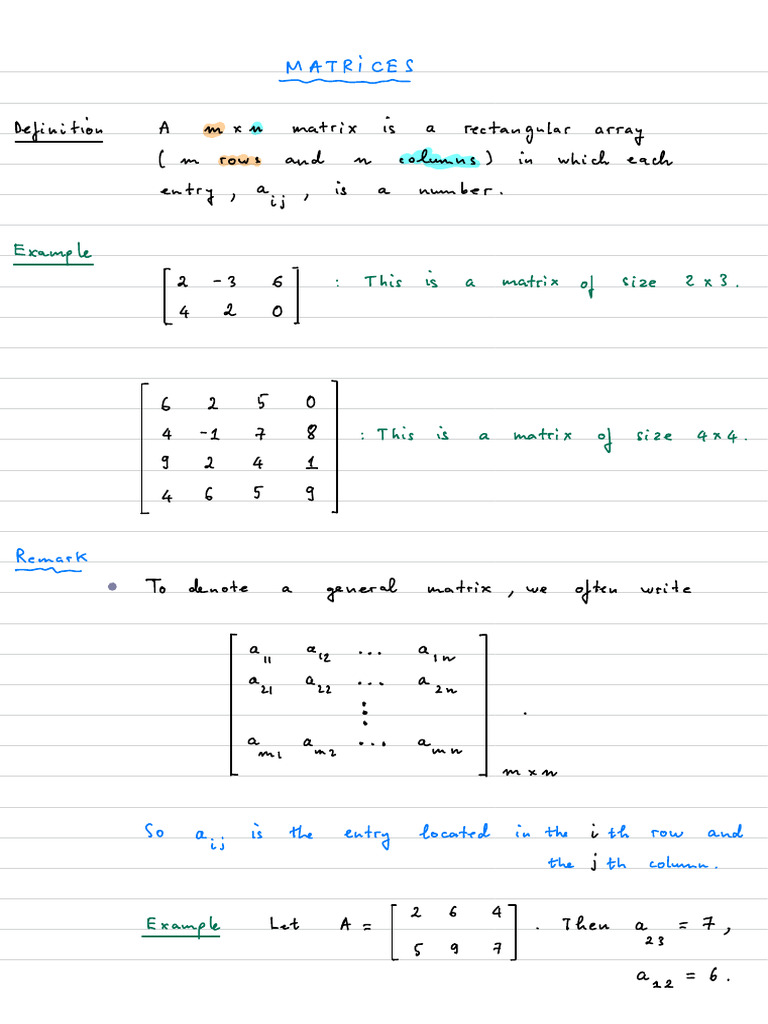 MATRICES
Definition A m × n matrix is a rectangular array
( m rows and n columns ) in which each
entry , a_ij , is a number .
Example
[ 2 -3 6 ] : This is a matrix of size 2 × 3 .
[ 4 2 0 ]
[ 6 2 5 0 ]
[ 4 -1 7 8 ] : This is a matrix of size 4 × 4 .
[ 9 2 4 1 ]
[ 4 6 5 9 ]
Remark
• To denote a general matrix , we often write
[ a_11 a_12 ... a_1n ]
[ a_21 a_22 ... a_2n ]
⋮ .
[ a_m1 a_m2 ... a_mn ] m × n
So a_ij is the entry located in the i th row and
the j th column .
Example Let A = [ 2 6 4 ] . Then a_23 = 7 ,
[ 5 9 7 ]
a_12 = 6 .